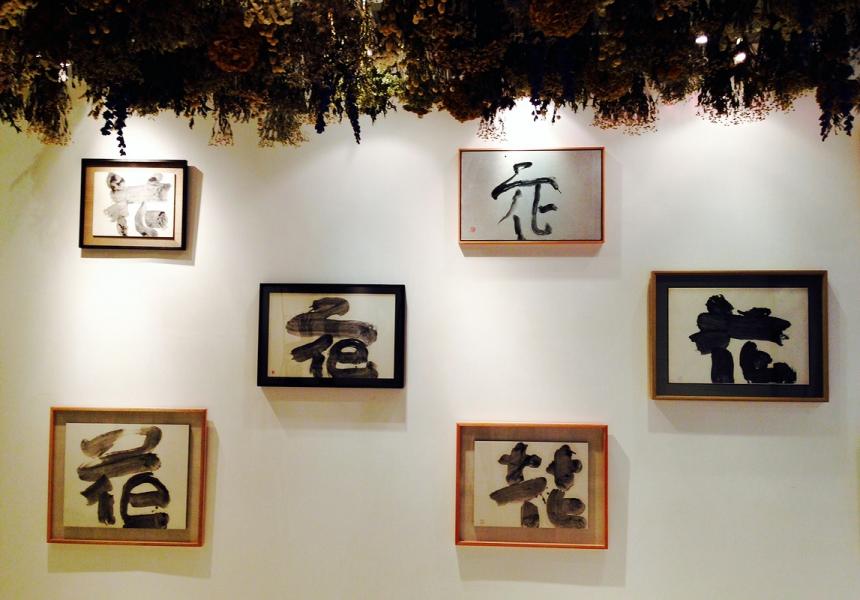 花
花
花
花
花
花